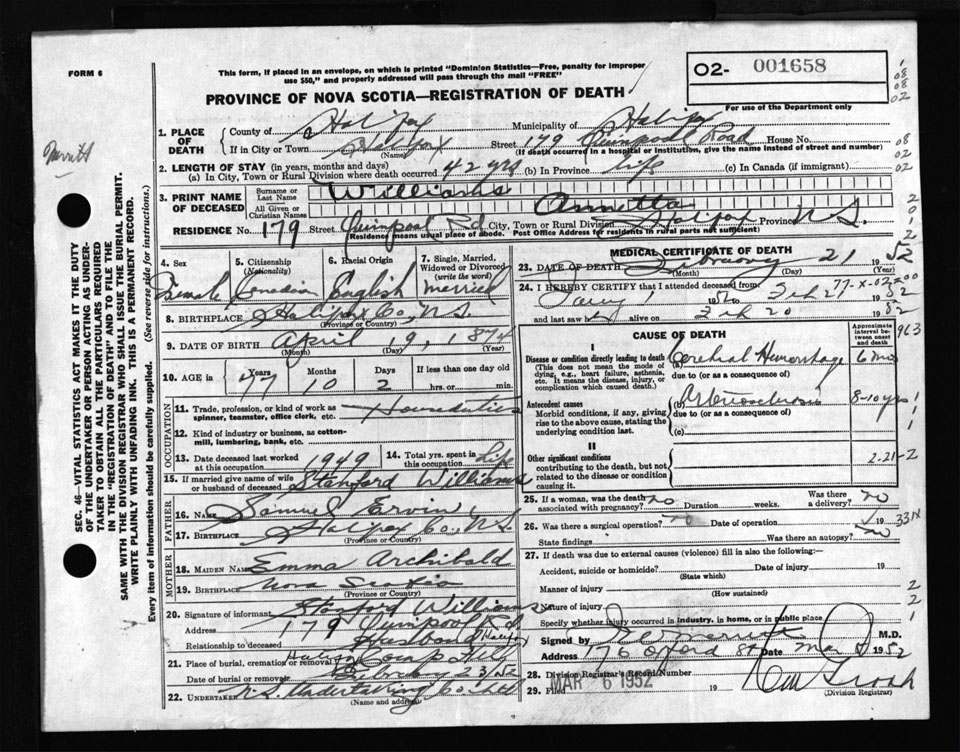 FORM 6
This form, if placed in an envelope, on which is printed "Dominion Statistics—Free, penalty for improper
use $50," and properly addressed will pass through the mail "FREE"
PROVINCE OF NOVA SCOTIA—REGISTRATION OF DEATH
02- 001658
For use of the Department only
1
08
08
02
Merritt
SEC. 46—VITAL STATISTICS ACT MAKES IT THE DUTY
OF THE UNDERTAKER OR PERSON ACTING AS UNDER-
TAKER TO OBTAIN ALL THE PARTICULARS REQUIRED
IN THE "REGISTRATION OF DEATH" AND TO FILE THE
SAME WITH THE DIVISION REGISTRAR WHO SHALL ISSUE THE BURIAL PERMIT.
WRITE PLAINLY WITH UNFADING INK. THIS IS A PERMANENT RECORD.
Every item of information should be carefully supplied. (See reverse side for instructions.)
1. PLACE OF DEATH
County of Halifax Municipality of Halifax
If in City or Town Halifax (Name) Street 179 Quinpool Road House No. 08
(If death occurred in a hospital or institution, give the name instead of street and number) 02
2. LENGTH OF STAY (in years, months and days)
(a) In City, Town or Rural Division where death occurred 42 yrs (b) In Province Life (c) In Canada (if immigrant) 02
3. PRINT NAME OF DECEASED
Surname or Last Name Williams
All Given or Christian Names Annetta
RESIDENCE No. 179 Street Quinpool Rd City, Town or Rural Division Halifax Province N.S.
(Residence means usual place of abode. Post Office Address for residents in rural parts not sufficient)
2
0
1
2
4. Sex Female
5. Citizenship (Nationality) Canadian
6. Racial Origin English
7. Single, Married, Widowed or Divorced (write the word) Married
8. BIRTHPLACE Halifax Co, N.S.
(Province or Country)
9. DATE OF BIRTH April 19, 1874
(Month) (Day) (Year)
10. AGE in Years 77 Months 10 Days 2 If less than one day old hrs. or min.
OCCUPATION
11. Trade, profession, or kind of work as spinner, teamster, office clerk, etc. Houseduties
12. Kind of industry or business, as cotton-mill, lumbering, bank, etc.
13. Date deceased last worked at this occupation 1949 14. Total yrs. spent in this occupation Life
15. If married give name of wife or husband of deceased Stanford Williams
FATHER
16. NAME Samuel Ervin
17. BIRTHPLACE Halifax Co, N.S.
(Province or Country)
MOTHER
18. MAIDEN NAME Emma Archibald
19. BIRTHPLACE Nova Scotia
(Province or Country)
20. Signature of informant Stanford Williams
Address 179 Quinpool Rd Halifax
Relationship to deceased Husband
21. Place of burial, cremation or removal Camp Hill
Date of burial or removal February 23/52
22. UNDERTAKER N.S. Undertaking Co. Ltd
(Name and address)
MEDICAL CERTIFICATE OF DEATH
23. DATE OF DEATH February 21 1952
(Month) (Day) (Year)
24. I HEREBY CERTIFY that I attended deceased from
1952 to Feb 21 1952
and last saw her alive on Feb 20 1952
CAUSE OF DEATH
Approximate interval between onset and death
I
Disease or condition directly leading to death (a) Cerebral Hemorrhage 6 mo
(This does not mean the mode of dying, e.g., heart failure, asthenia, etc. It means the disease, injury, or complication which caused death.)
due to (or as a consequence of)
Antecedent causes (b) Arteriosclerosis 8-10 yrs
Morbid conditions, if any, giving rise to the above cause, stating the underlying condition last.
due to (or as a consequence of)
(c)
II
Other significant conditions
contributing to the death, but not related to the disease or condition causing it.
2-21-2
25. If a woman, was the death associated with pregnancy? no Duration weeks. Was there a delivery? no
26. Was there a surgical operation? no Date of operation 19
State findings Was there an autopsy? no
27. If death was due to external causes (violence) fill in also the following:—
Accident, suicide or homicide? Date of injury 19
(State which)
Manner of injury 2
(How sustained)
Nature of injury 2
Specify whether injury occurred in industry, in home, or in public place 1
Signed by M.D.
Address 176 Oxford St Date Mar 1952
28. Division Registrar's Record Number
29. Filed MAR 6 1952 19
(Division Registrar)